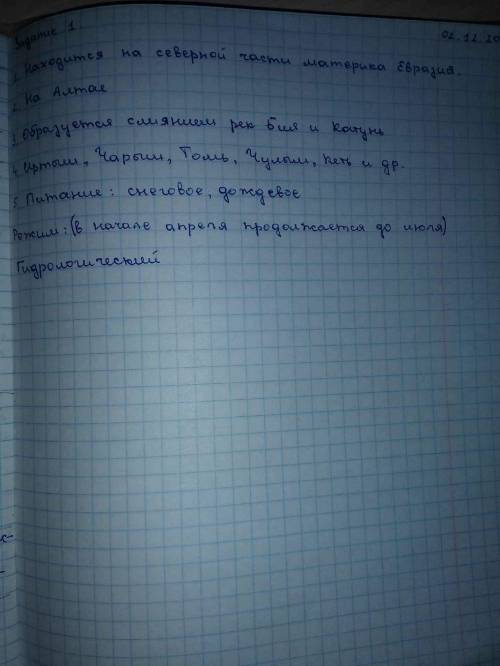 Задание 1. 02.12.20
1. Находится на северной части материка Евразия.
2. На Алтае
3. Образуется слиянием рек Бия и Катунь
4. Иртыш, Чарыш, Томь, Чулым, Кеть и др.
5. Питание: снеговое, дождевое
Режим: (в начале апреля продолжается до июля)
Гидрологический